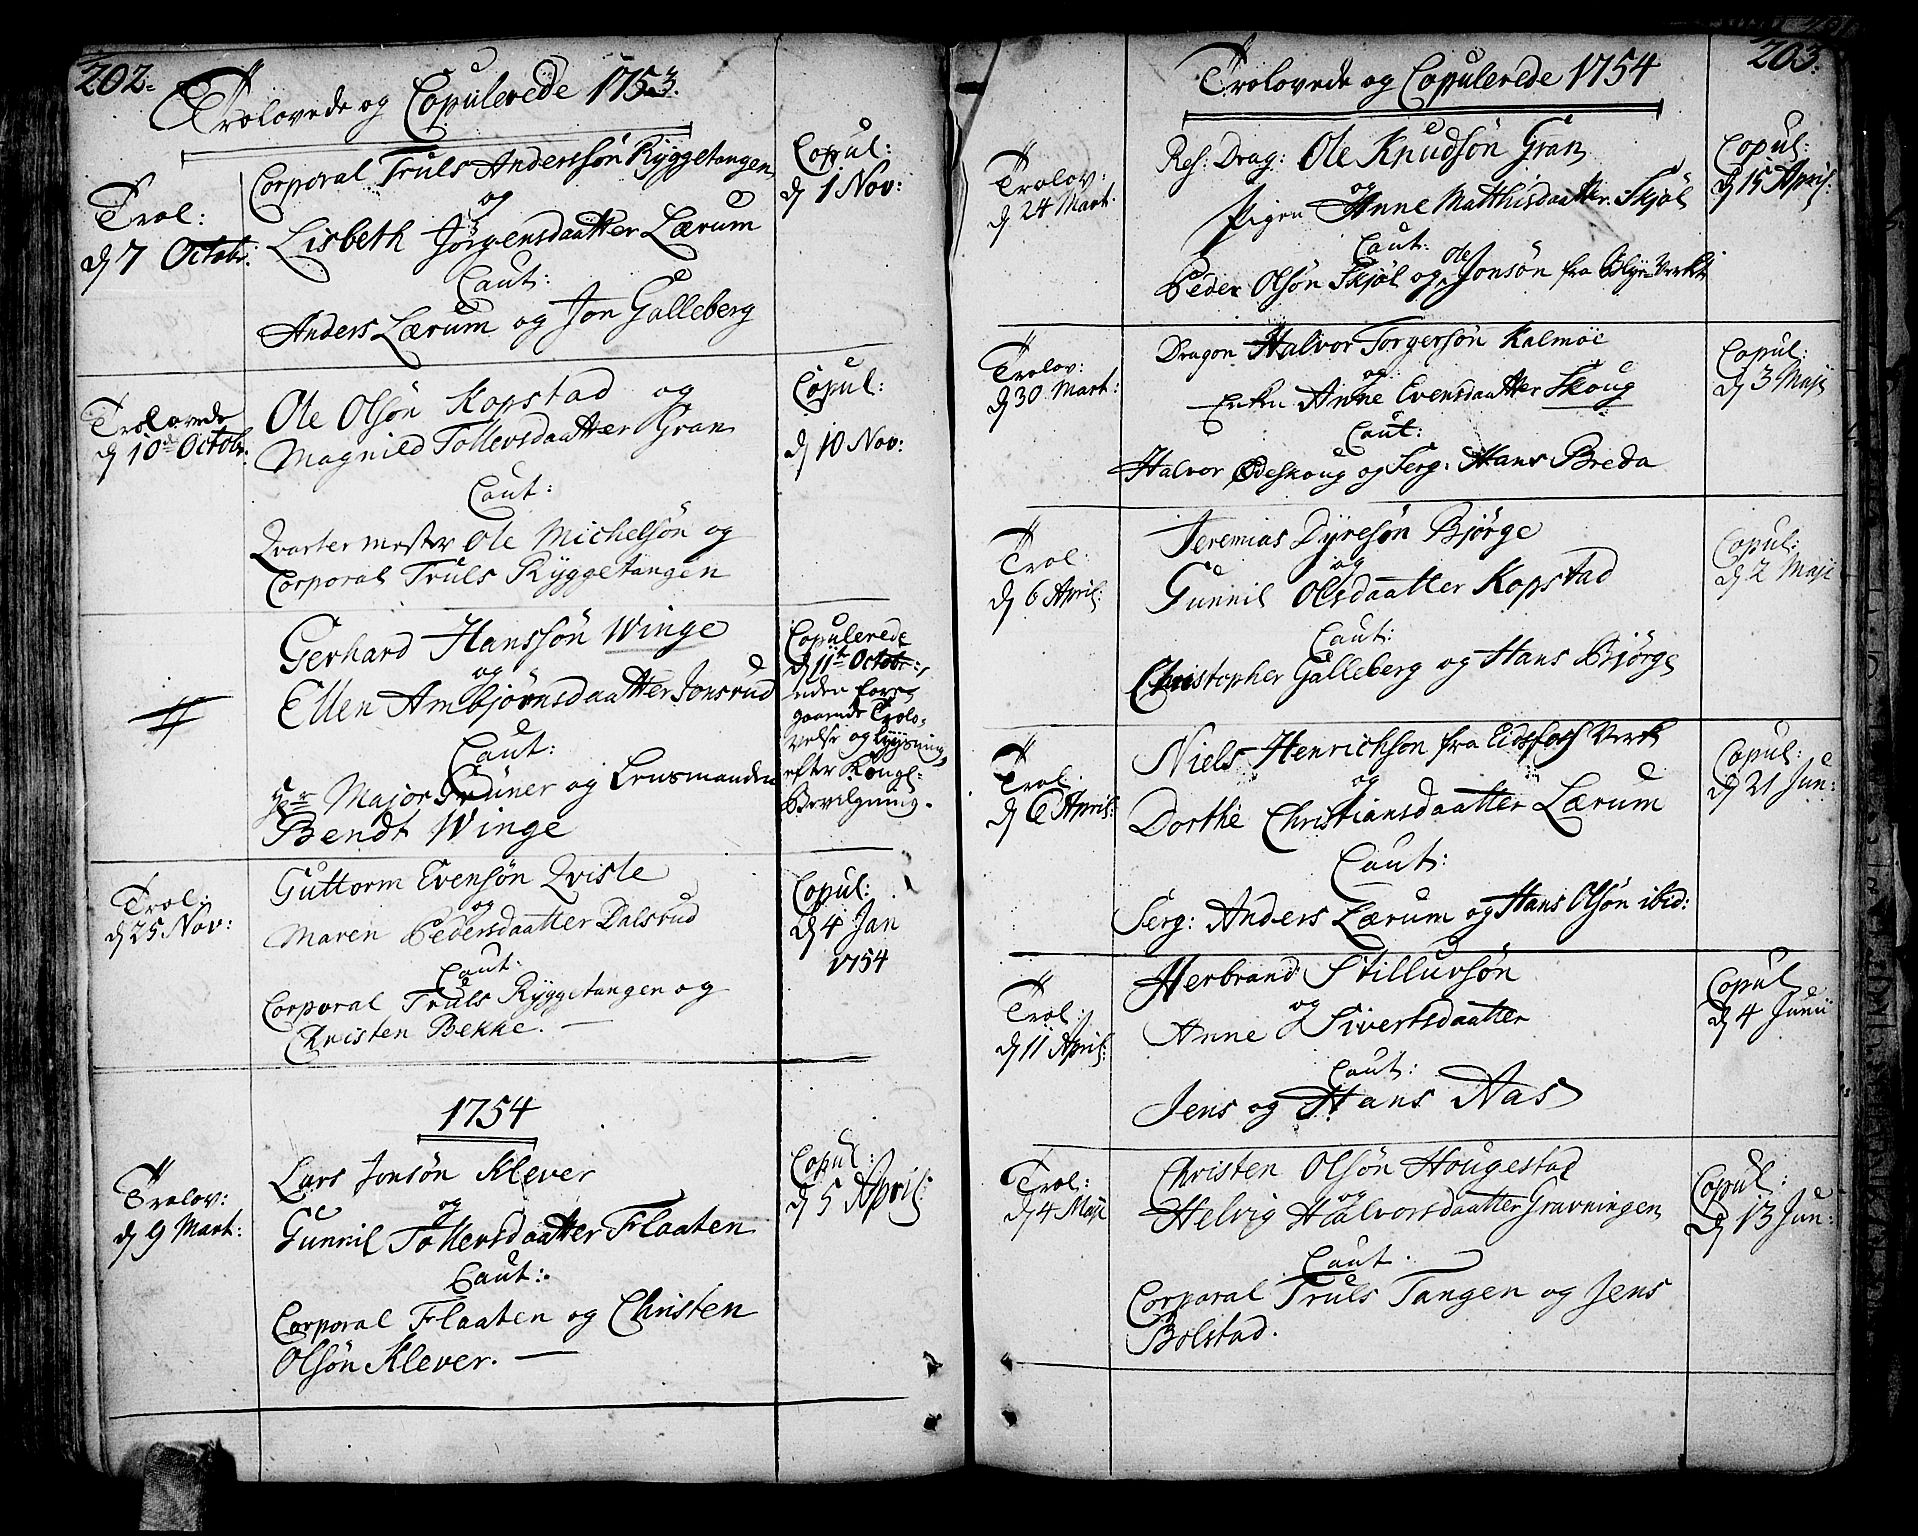 202.
Trolovede og Copulerede 1753.
Trol:
d 7 Octobr:
Corporal Truls Anderssøn Ryggetangen
og
Lisbeth Jørgensdaatter Lærum
Caut:
Anders Lærum og Jon Galleberg
Copul:
d 1 Nov:
Trolovede
d 10de Octobr.
Ole Olsøn Kopstad og
Magnild Tollevsdaatter Gran
Caut:
Qvartermester Ole Michelsøn og
Corporal Truls Ryggetangen
Copul:
d 10 Nov:
Gerhard Hanssøn Winge
og
Ellen Ambjørnsdaatter Jonsrud
Caut:
Hr Major Grüner og Lensmanden
Bendt Winge
Copulerede
d 11te Octobr:,
uden fore-
gaaende Trolo-
velse og Lysning,
efter Kongel:
Bevilgning.
Trol:
d 25 Nov:
Guttorm Evensøn Qvisle
og
Maren Pedersdaatter Dalsrud
Caut:
Corporal Truls Ryggetangen og
Christen Bekke. —
Copul:
d 4 Jan
1754
1754
Trolov:
d 9 Mart:
Lars Jonsøn Klever
og
Gunnil Tollevsdaatter Flaaten
Caut:
Corporal Flaaten og Christen
Olsøn Klever. —
Copul:
d 5 April:
203.
Trolovede og Copulerede 1754
Trolov:
d 24 Mart.
Res: Drag: Ole Knudsøn Gran
og
Pigen Anne Matthisdaatter Skjøl
Caut:
Peder Olsøn Skjøl og Ole Jonsøn fra Blye Verket
Copul:
d 15 April:
Trolov:
d 30 Mart:
Dragon Halvor Torgersøn Kalmoe
og
Enken Anne Evensdaatter Skoug
Caut:
Halvor Ødeskoug og Serg: Hans Breda
Copul:
d 3 Maji
Trol:
d 6 April:
Jeremias Dyresøn Bjørge
og
Gunnil Olsdaatter Kopstad
Caut:
Christopher Galleberg og Hans Bjørge
Copul:
d 2 Maji
Trol:
d 6 April:
Niels Henrichsøn fra Eidsfoss Verk
og
Dorthe Christiansdaatter Lærum
Caut:
Serg: Anders Lærum og Hans Olsøn ibid:
Copul:
d 21 Jun:
Trol:
d 11 April:
Herbrand Stilluvsøn
og
Anne Sivertsdaatter
Caut:
Jens og Hans Aas
Copul
d 4 Junii
Trol:
d 4 Maji
Christen Olsøn Hougestad
og
Helvig Halvorsdaatter Gravningen
Caut.
Corporal Truls Tangen og Jens
Bolstad.
Copul:
d 13 Jun: